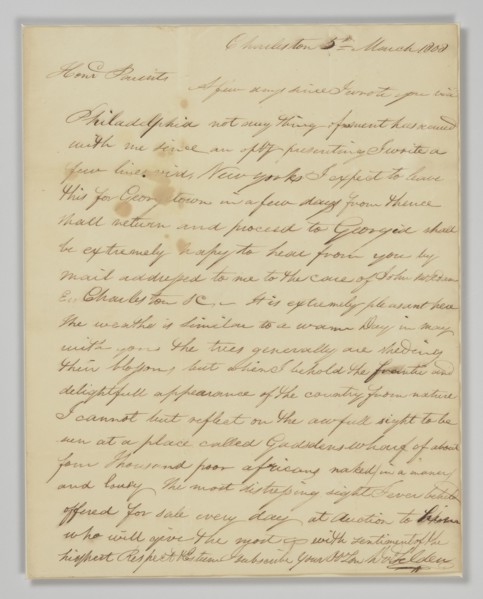 Charleston 5th March 1808
Hond Parents
A few days since I wrote you via
Philadelphia not any thing of event has occured
with me since an opty presenting I write a
few lines via New york I expect to leave
this for Georgetown in a few days from thence
shall return and proceed to Georgia shall
be extremely happy to hear from you by
mail addressed to me to the care of John
Charleston SC. It is extremely pleasant here
the weather is similar to a warm Day in may
with you & the trees generally are sheding
their blossoms but when I behold the and
delightfull appearance of the country from nature
I cannot but reflect on the awfull sight to be
seen at a place called Gaddens wharf of about
four thousand poor africans naked in a manner
and lousy the most distressing sight I ever beheld
offered for sale every day at auction to him
who will give the most with sentiment of the
highest Respect & Esteem subscribe your Son